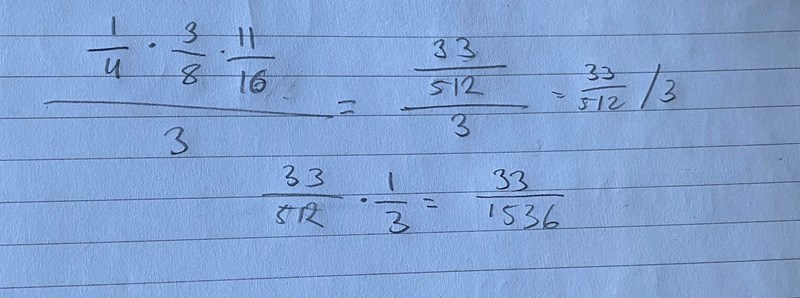 1/4 · 3/8 · 11/16 / 3 = 33/512 / 3 = 33/512 / 3
33/512 · 1/3 = 33/1536